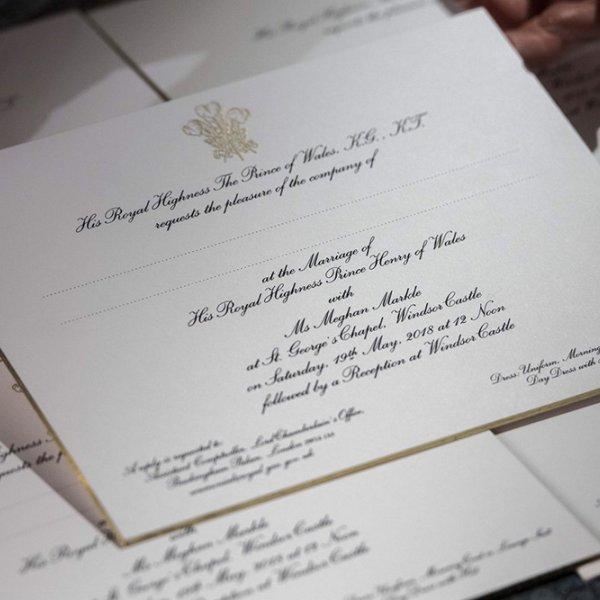 His Royal Highness The Prince of Wales, K.G., K.T.
requests the pleasure of the company of
at the Marriage of
His Royal Highness Prince Henry of Wales
with
Ms Meghan Markle
at St. George's Chapel, Windsor Castle
on Saturday, 19th May, 2018 at 12 Noon
followed by a Reception at Windsor Castle
A reply is requested to:
Assistant Comptroller, Lord Chamberlain's Office,
Buckingham Palace, London
Dress: Uniform, Morning
Day Dress with
His Royal Highness
requests the p
with
His Royal H
Ms Meghan Markle
St. George's Chapel, Windsor Castle
19th May, 2018 at 12 Noon
Reception at Windsor Castle